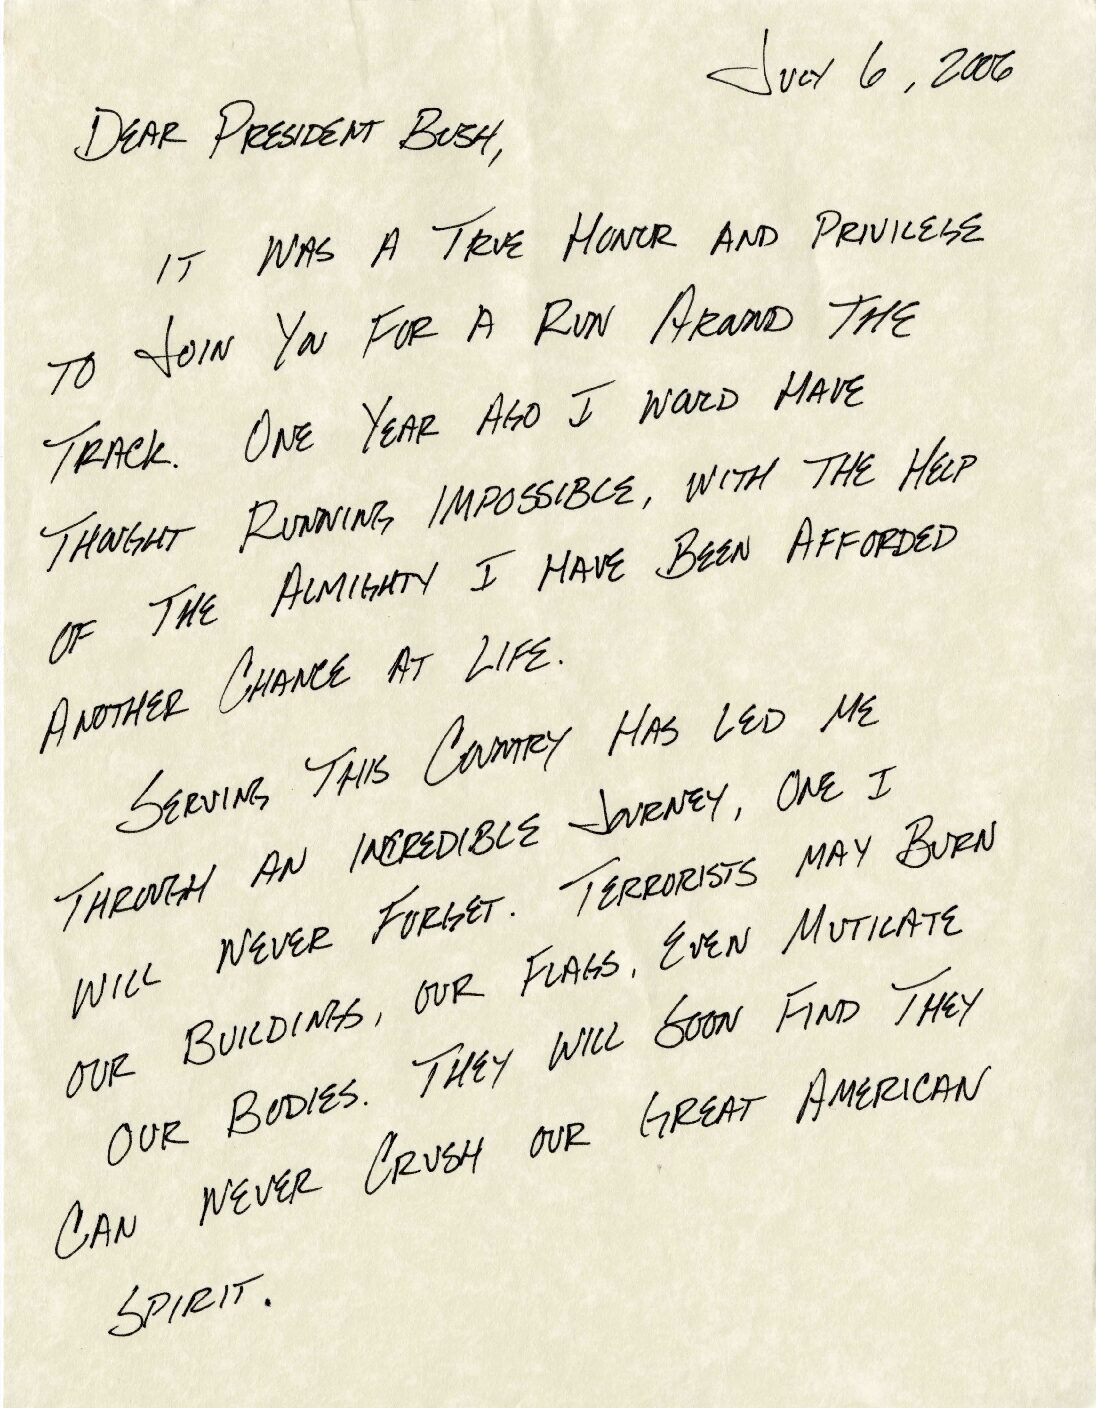 July 6, 2006
Dear President Bush,
It was a true honor and privilege
to join you for a run around the
track. One year ago I would have
thought running impossible, with the help
of the Almighty I have been afforded
another chance at life.
Serving this country has led me
through an incredible journey, one I
will never forget. Terrorists may burn
our buildings, our flags, even mutilate
our bodies. They will soon find they
can never crush our great American
spirit.